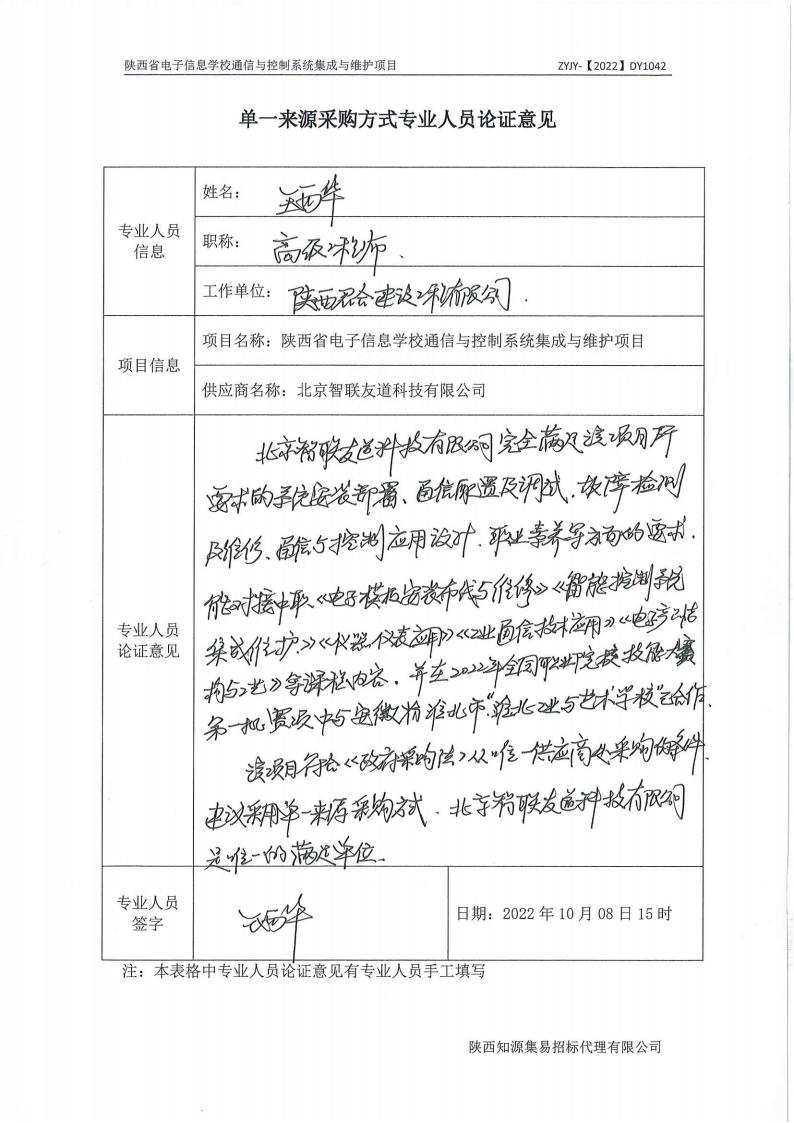 陕西省电子信息学校通信与控制系统集成与维护项目 ZYJY-【2022】DY1042
单一来源采购方式专业人员论证意见
专业人员信息
姓名：西华
职称：高级工程师、
工作单位：陕西君合建设工程有限公司.
项目信息
项目名称：陕西省电子信息学校通信与控制系统集成与维护项目
供应商名称：北京智联友道科技有限公司
专业人员论证意见
北京智联友道科技有限公司完全满足该项目所
要求的系统安装部署、通信配置及调试、故障检测
及维修、通信与控制应用设计、职业素养等方面的要求.
能对接中职《电子模板安装布线与维修》《智能控制系统
集成维护》《仪器仪表应用》《工业通信技术应用》《电子产品结
构与工艺》等课程内容，并在2022年全国职业院校技能大赛
第一批赛项中与安徽省淮北市“淮北工业与艺术学校”已合作.
该项目符合《政府采购法》从唯一供应商处采购的条件.
建议采用单一来源采购方式.北京智联友道科技有限公司
是唯一的满足单位.
专业人员签字
西华
日期：2022 年 10 月 08 日 15 时
注：本表格中专业人员论证意见有专业人员手工填写
陕西知源集易招标代理有限公司